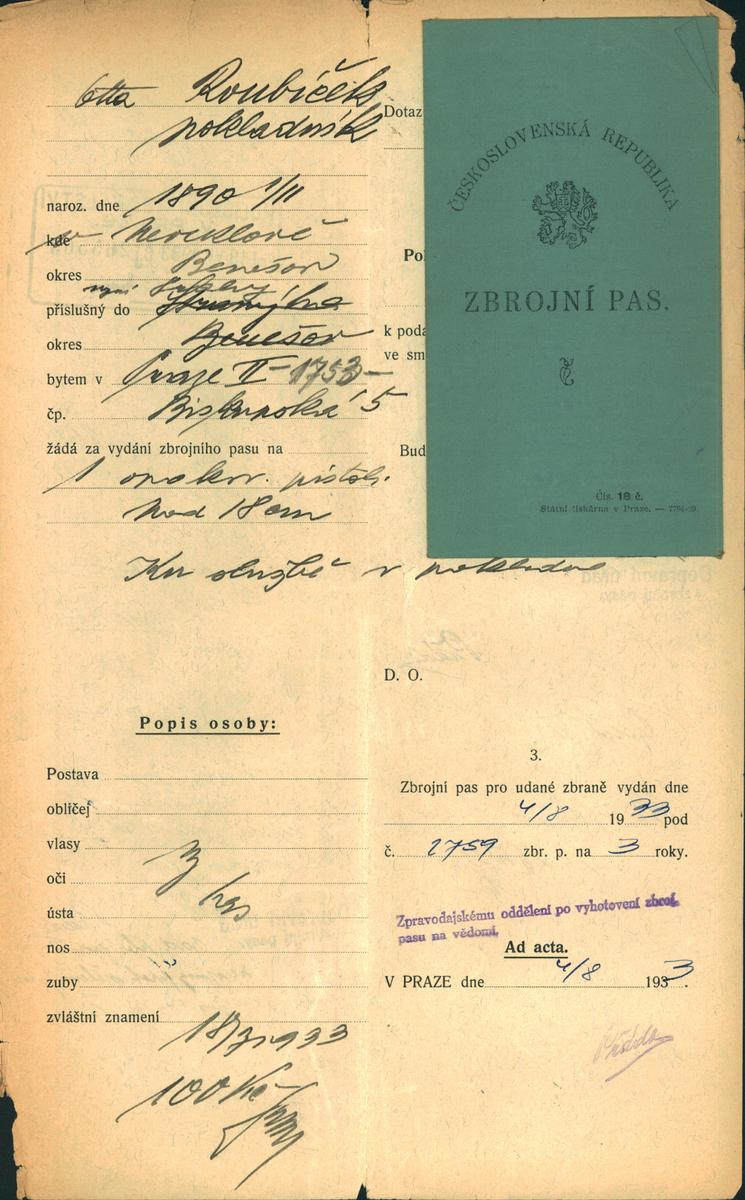 Otta Roubíček
pokladník
naroz. dne 1890 1/II
kde v Neveklově
okres Benešov
nyní
příslušný do
okres Benešov
bytem v Praze II-1753-
čp. Biskupská 5
žádá za vydání zbrojního pasu na
1 opakov. pistoli
nad 18 cm
Ku službě v pokladně
Popis osoby:
Postava
obličej
vlasy
oči
ústa
nos
zuby
zvláštní znamení
1933
100 Kč
Dotaz
Po
k poda
ve sm
Bud
ČESKOSLOVENSKÁ REPUBLIKA
ZBROJNÍ PAS.
Čís. 18 č.
Státní tiskárna v Praze. —
D. O.
3.
Zbrojní pas pro udané zbraně vydán dne
4/8 1933 pod
č. 2759 zbr. p. na 3 roky.
Zpravodajskému oddělení po vyhotovení zbroj.
pasu na vědomí.
Ad acta.
V PRAZE dne 4/8 1933.